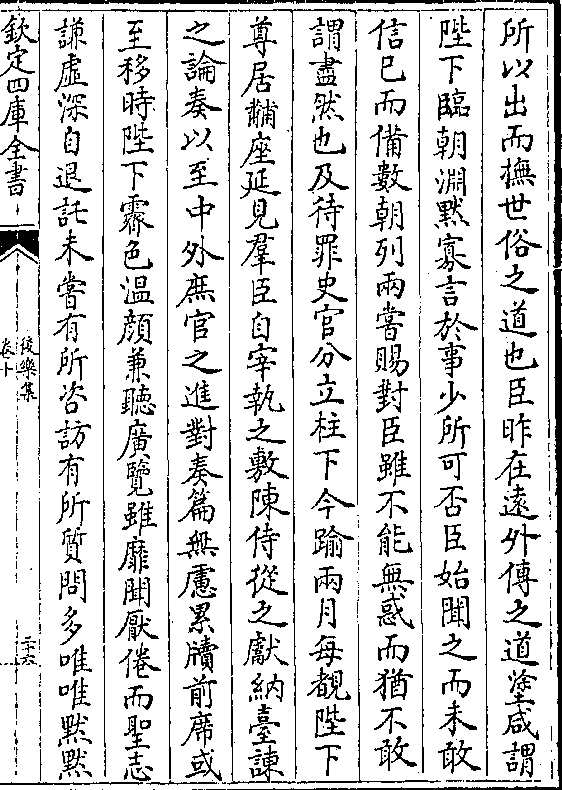 所以出而撫世俗之道也臣昨在遠外傳之道塗咸謂
陛下臨朝淵黙寡言於事少所可否臣始聞之而未敢
信已而備數朝列兩嘗賜對臣雖不能無惑而猶不敢
謂盡然也及待罪史官分立柱下今踰兩月每覩陛下
尊居黼座延見羣臣自宰執之敷陳侍從之獻納臺諫
之論奏以至中外庶官之進對奏篇無慮累牘前席或
至移時陛下霽色温顔兼聽廣覽雖靡聞厭倦而聖志
謙虛深自退託未嘗有所咨訪有所質問多唯唯黙黙
欽定四庫全書
後樂集
卷十
二十六